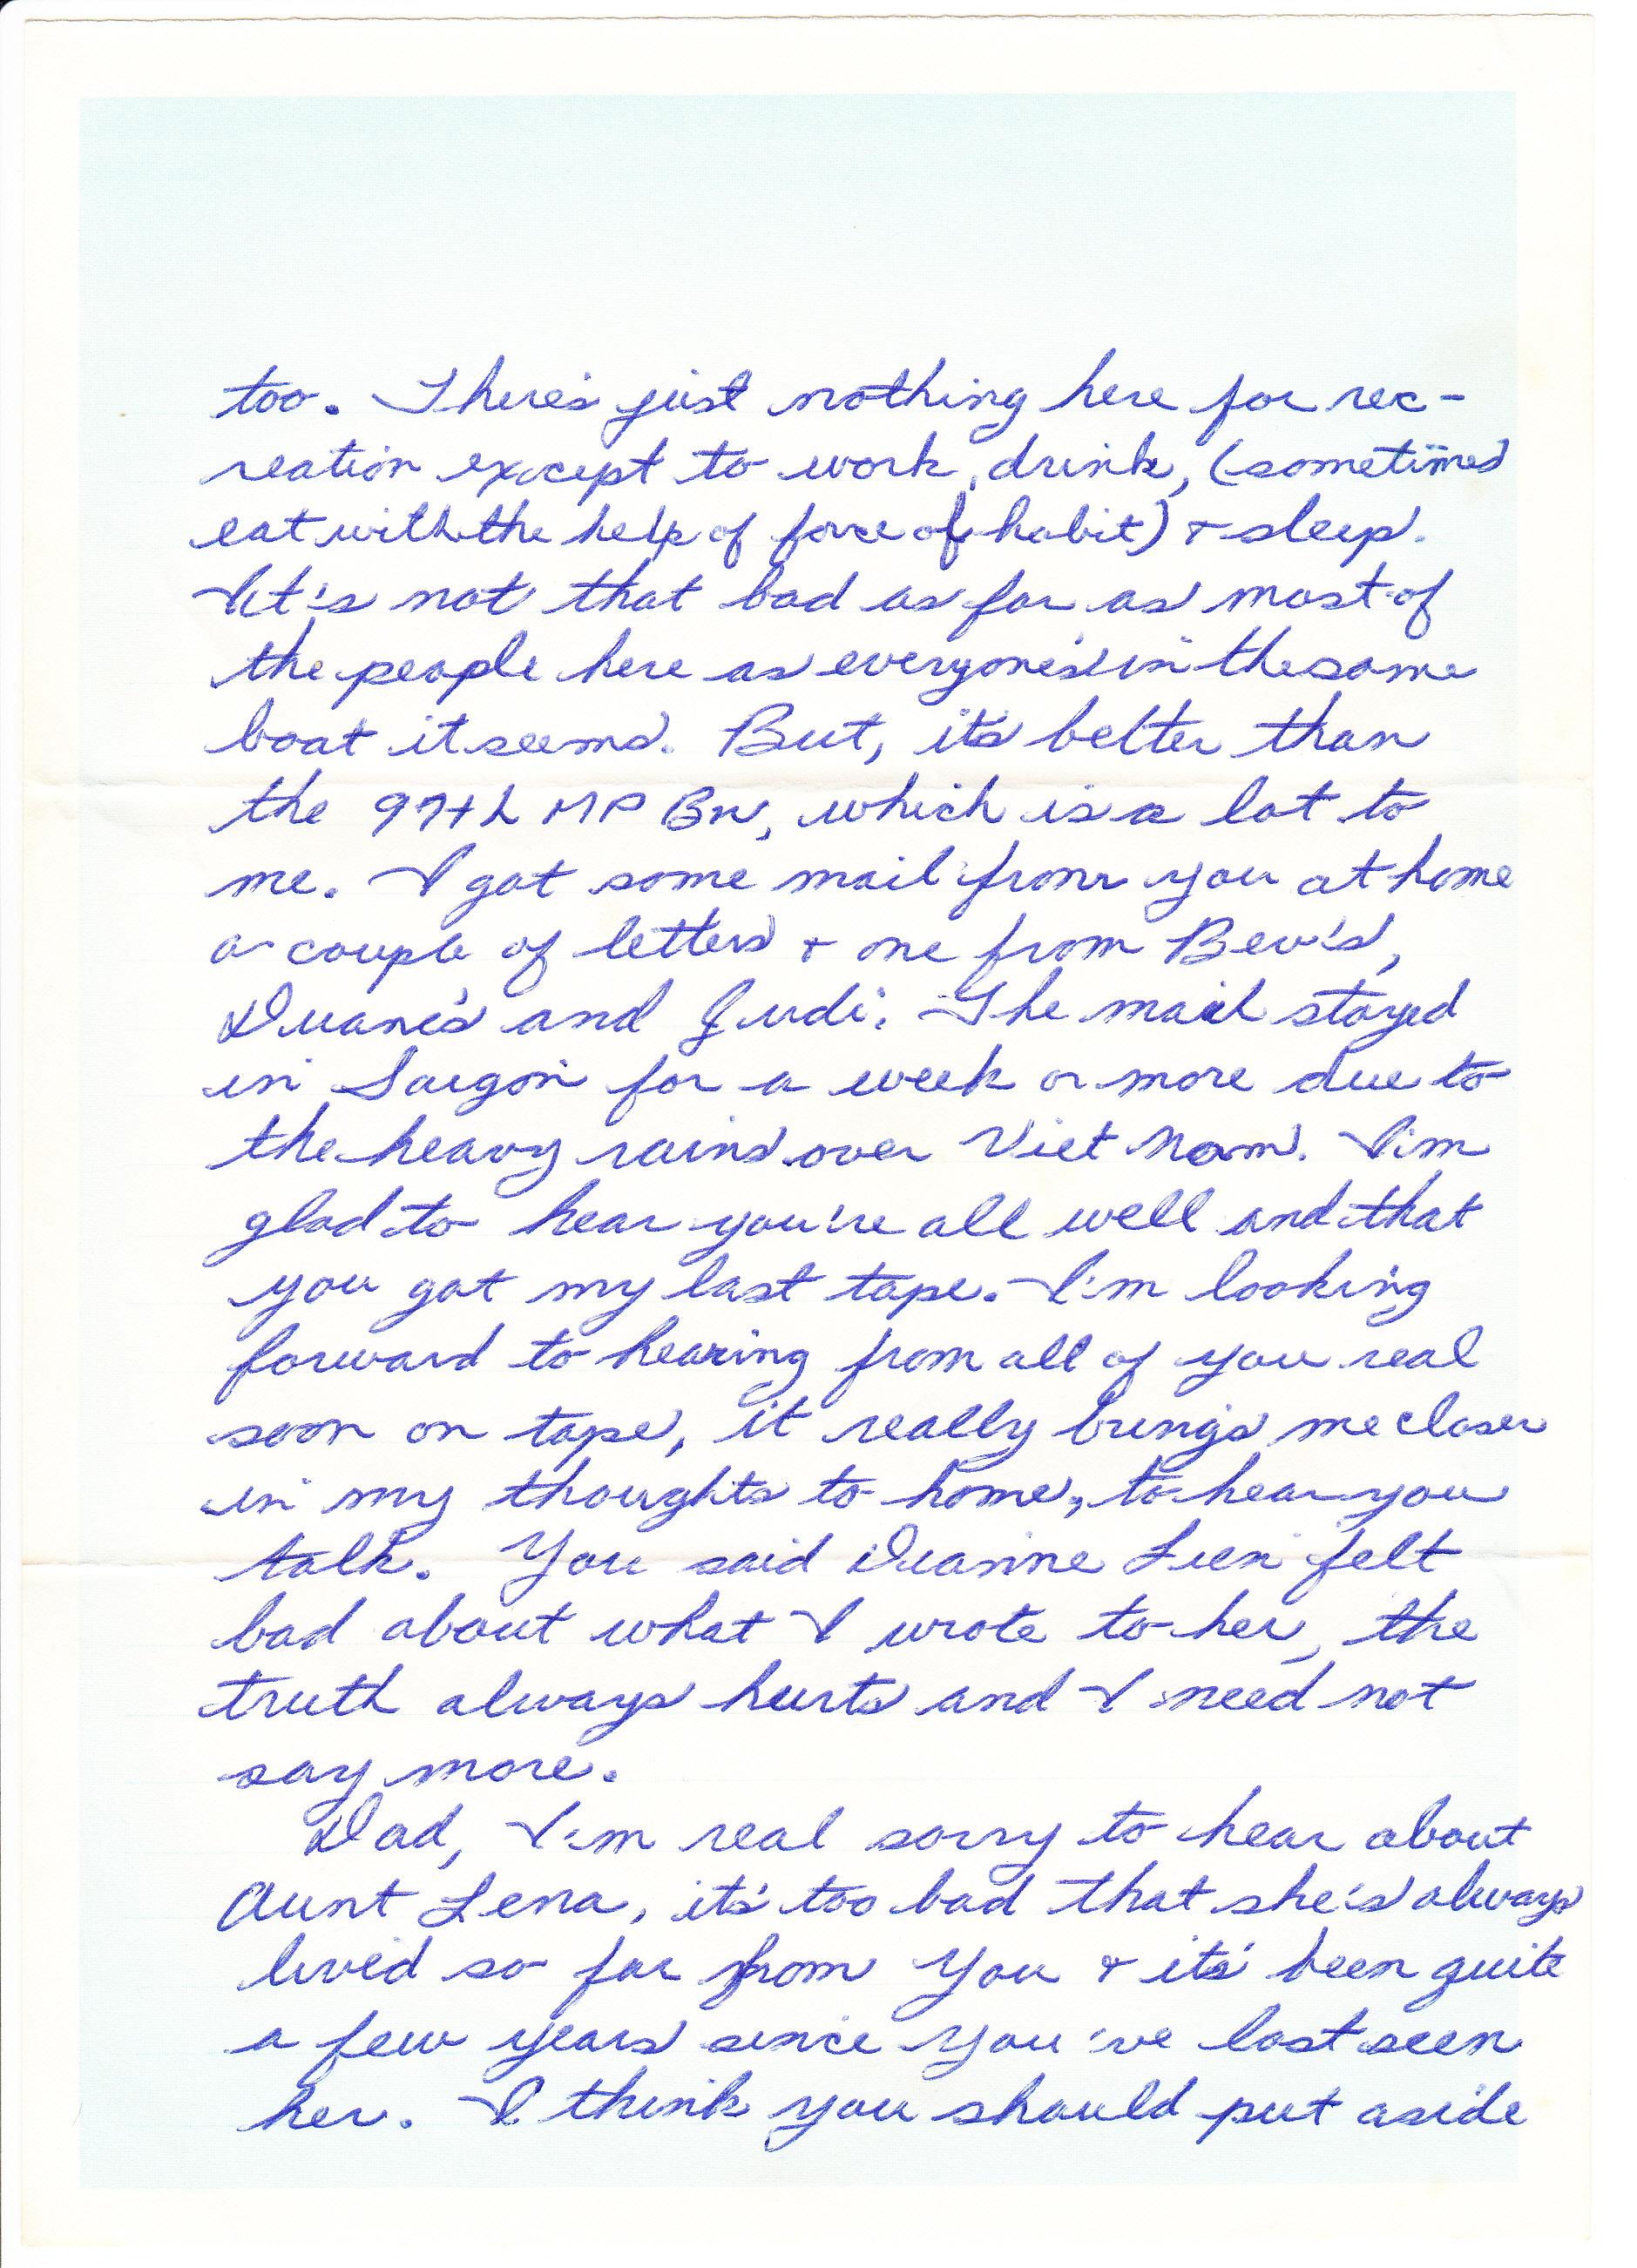 too. There's just nothing here for rec-
reation except to work, drink, (sometimes
eat with the help of force of habit) + sleep.
It's not that bad as far as most of
the people here as everyone's in the same
boat it seems. But, it's better than
the 97th MP BN, which is a lot to
me. I got some mail from you at home
a couple of letters + one from Bev's,
Duane's and Judi. The mail stayed
in Saigon for a week or more due to
the heavy rains over Viet Nam. I'm
glad to hear you're all well and that
you got my last tape. I'm looking
forward to hearing from all of you real
soon on tape, it really brings me closer
in my thoughts to home, to hear you
talk. You said felt
bad about what I wrote to her, the
truth always hurts and I need not
say more.
Dad, I'm real sorry to hear about
Aunt Lena, it's too bad that she's always
lived so far from you + it's been quite
a few years since you've last seen
her. I think you should put aside